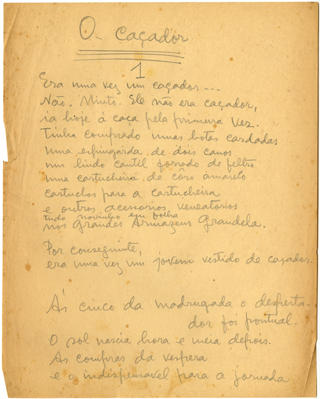 O Caçador
1
Era uma vez um caçador...
Não. Minto. Ele não era caçador,
ia hoje à caça pela primeira vez.
Tinha comprado umas botas cardadas
uma espingarda de dois canos
um lindo cantil forrado de feltro
uma cartucheira de coiro amarelo
cartuchos para a cartucheira
e outros acessorios venatorios
tudo novinho em folha
nos Grandes Armazens Grandela.
Por conseguinte,
era uma vez um jovem vestido de caçador.
Às cinco da madrugada o desperta-
dor foi pontual.
O sol nascia hora e meia depois.
As compras da vespera
e o indispensavel para a jornada